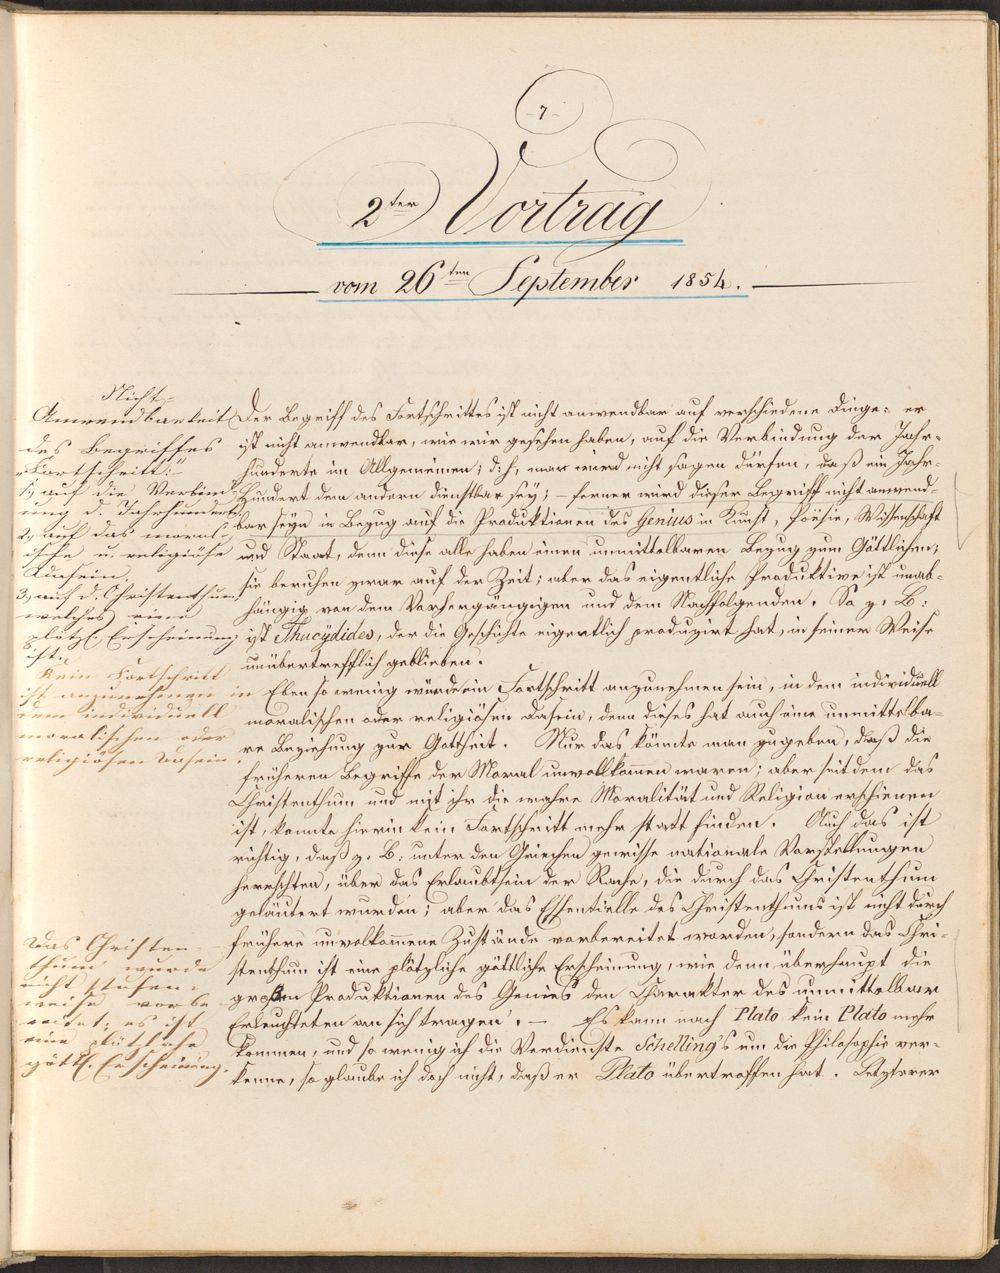 -7-
2ter Vortrag
vom 26ten September 1854.
Nicht-
Anwendbarkeit
des Begriffes
„Fortschritt“
1., auf die Verbind-
ung d. Jahrhunderte
2., auf das moral-
ische u. religiöse
Dasein,
3., auf d. Christenthum,
welches eine
plötzl. Erscheinung
ist.
Kein Fortschritt
ist anzunehmen in
dem individuell
moralischen oder
religiösen Dasein.
Das Christen-
thum wurde
nicht stufen-
weise vorbe-
reitet; es ist
eine plötzliche
göttl. Erscheinung.
Der Begriff des Fortschrittes ist nicht anwendbar auf verschiedene Dinge: er
ist nicht anwendbar, wie wir gesehen haben, auf die Verbindung der Jahr-
hunderte im Allgemeinen; d: h, man wird nicht sagen dürfen, daß ein Jahr-
hundert dem andern dienstbar sey; – ferner wird dieser Begriff nicht anwend-
bar seyn in Bezug auf die Produktionen des Genius in Kunst, Poësie, Wissenschaft
und Staat, denn diese alle haben einen unmittelbaren Bezug zum Göttlichen;
sie beruhen zwar auf der Zeit; aber das eigentliche Produktive ist unab-
hängig von dem Vorhergängigen und dem Nachfolgenden. So z. B:
ist Thucydides, der die Geschichte eigentlich produzirt hat, in seiner Weise
unübertrefflich geblieben.
Eben so wenig würde ein Fortschritt anzunehmen sein, in dem individuell
moralischen oder religiösen Dasein, denn dieses hat auch eine unmittelba-
re Beziehung zur Gottheit. Nur das könnte man zugeben, daß die
früheren Begriffe der Moral unvollkommen waren; aber seitdem das
Christenthum und mit ihr die wahre Moralität und Religion erschienen
ist, konnte hierin kein Fortschritt mehr statt finden. Auch das ist
richtig, daß z. B: unter den Griechen gewisse nationale Vorstellungen
herrschten, über das Erlaubtsein der Rache, die durch das Christenthum
geläutert wurden; aber das Essentielle des Christenthums ist nicht durch
frühere unvolkommene Zustände vorbereitet worden, sondern das Chri-
stenthum ist eine plötzliche göttliche Erscheinung, wie denn überhaupt die
großen Produktionen des Genies den Charakter des unmittelbar
Erleuchteten an sich tragen. – Es kann nach Plato kein Plato mehr
kommen, und so wenig ich die Verdienste Schelling's um die Philosophie ver-
kenne, so glaube ich doch nicht, daß er Plato übertroffen hat. Letzterer